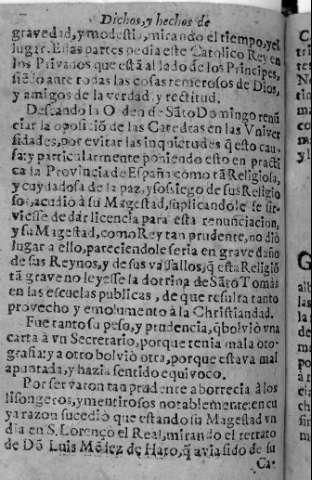 Dichos, y hechos de
gravedad, y modestia, mirando el tiempo, y el
lugar. Estas partes pedia este Catolico Rey en
los Privados que està al lado de los Principes,
siẽdo ante todas las cosas temerosos de Dios,
y amigos de la verdad, y rectitud.
Desseando la Orden de Sãto Domingo renũ
ciar la oposiciõ de las Catedras en las Vniver
sidades, por evitar las inquietudes q̃ esto cau-
sa: y particularmente poniendo esto en practi
ca la Provincia de España como tã Religiosa,
y cuydadosa de la paz, y sosiego de sus Religio
sos, acudiò a su Magestad, suplicandole se sir-
viesse de dar licencia para esta renunciacion,
y su Magestad, como Rey tan prudente, no diò
lugar a ello, pareciendole seria en grave daño
de sus Reynos, y de sus vassallos, q̃ esta Religiõ
tã grave no leyesse la dotrina de Sãto Tomás
en las escuelas publicas, de que resulta tanto
provecho y emolumento à la Christiandad.
Fue tanto su peso, y prudencia, q̃ bolviò vna
carta à vn Secretario, porque tenia mala oto-
grafia: y a otro bolviò otra, porque estava mal
apuntada, y hazia sentido equivoco.
Por ser varon tan prudente aborrecia à los
lisongeros, y mentirosos notablemente: en cu
ya razon sucediò que estando su Magestad vn
dia en S. Lorenço el Real, mirando el retrato
de Dõ Luis Mẽdez de Haro, q̃ avia sido de su
Ca-